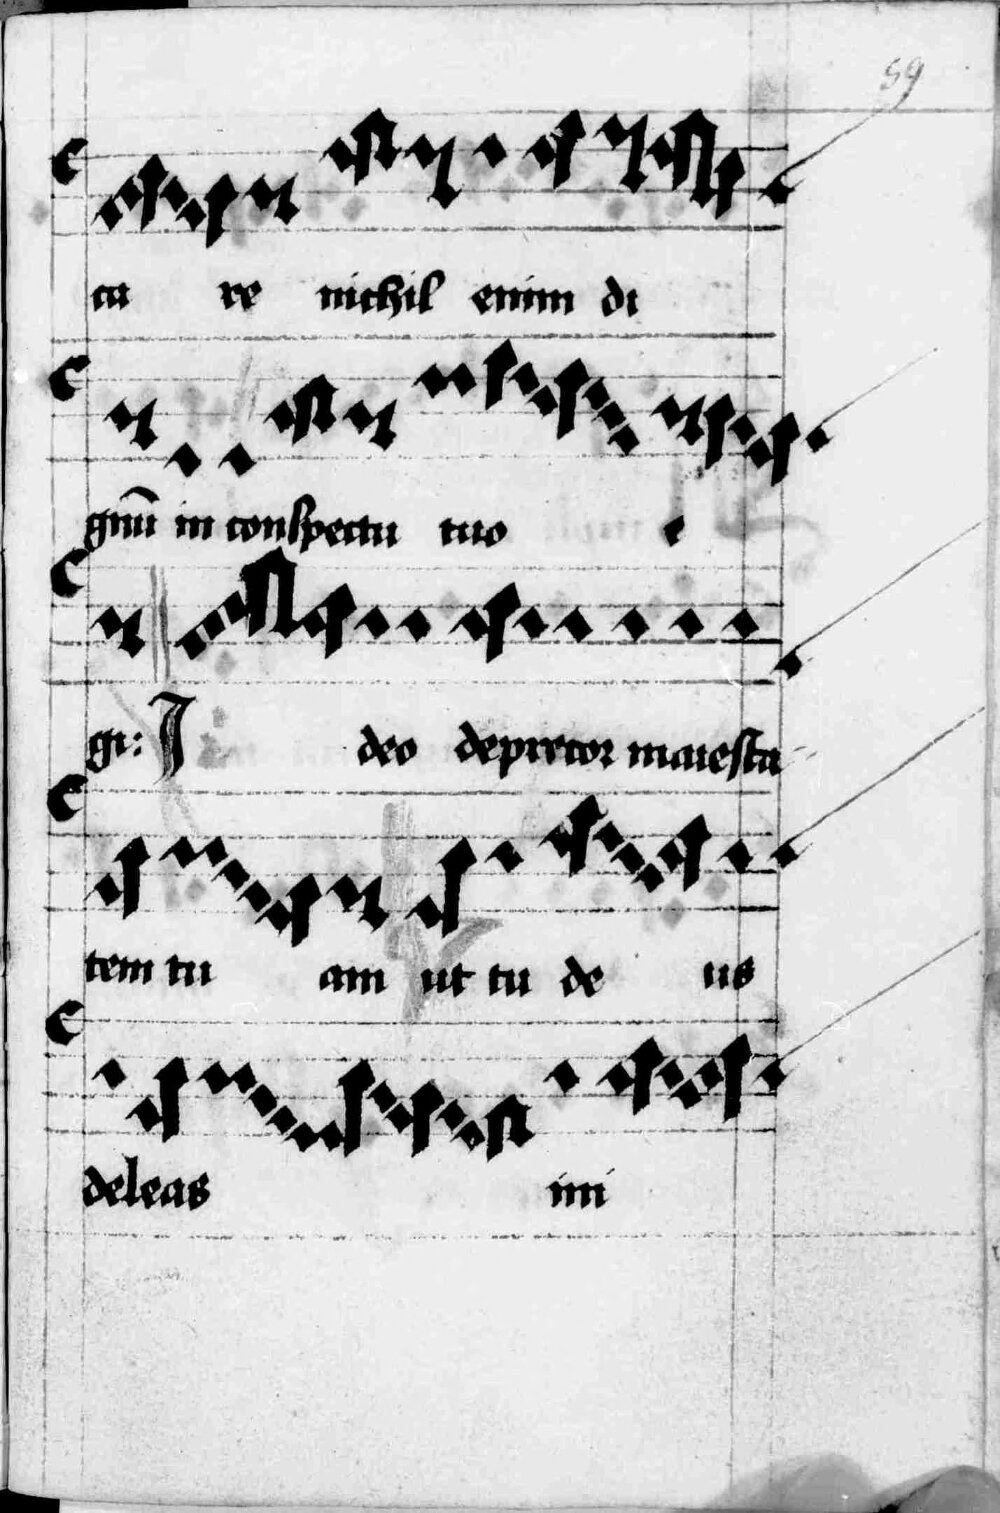 59
ca re nichil enim di
gnū in conspectu tuo e
gi: I deo deprecor maiesta
tem tu am ut tu de us
deleas ini